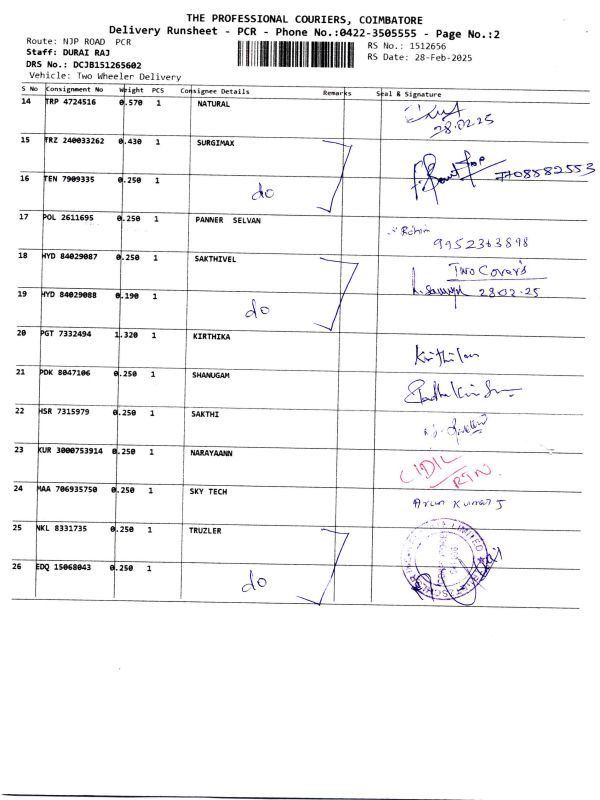 THE PROFESSIONAL COURIERS, COIMBATORE
Delivery Runsheet - PCR - Phone No.:0422-3505555 - Page No.:2
Route: NJP ROAD PCR
RS No.: 1512656
Staff: DURAI RAJ
RS Date: 28-Feb-2025
DRS No.: DCJB151265602
Vehicle: Two Wheeler Delivery
S No Consignment No Weight PCS Consignee Details Remarks Seal & Signature
14 TRP 4724516 0.570 1 NATURAL
28.02.25
15 TRZ 240033262 0.430 1 SURGIMAX
7708882553
16 TEN 7909335 0.250 1 do
17 POL 2611695 0.250 1 PANNER SELVAN
9952363898
18 HYD 84029087 0.250 1 SAKTHIVEL
Two Covers
28.02.25
19 HYD 84029088 0.190 1 do
20 PGT 7332494 1.320 1 KIRTHIKA
21 PDK 8047106 0.250 1 SHANUGAM
22 HSR 7315979 0.250 1 SAKTHI
23 KUR 3000753914 0.250 1 NARAYAANN
RTN
24 MAA 706935750 0.250 1 SKY TECH
Arun Kumar J
25 NKL 8331735 0.250 1 TRUZLER
26 EDQ 15068043 0.250 1 do